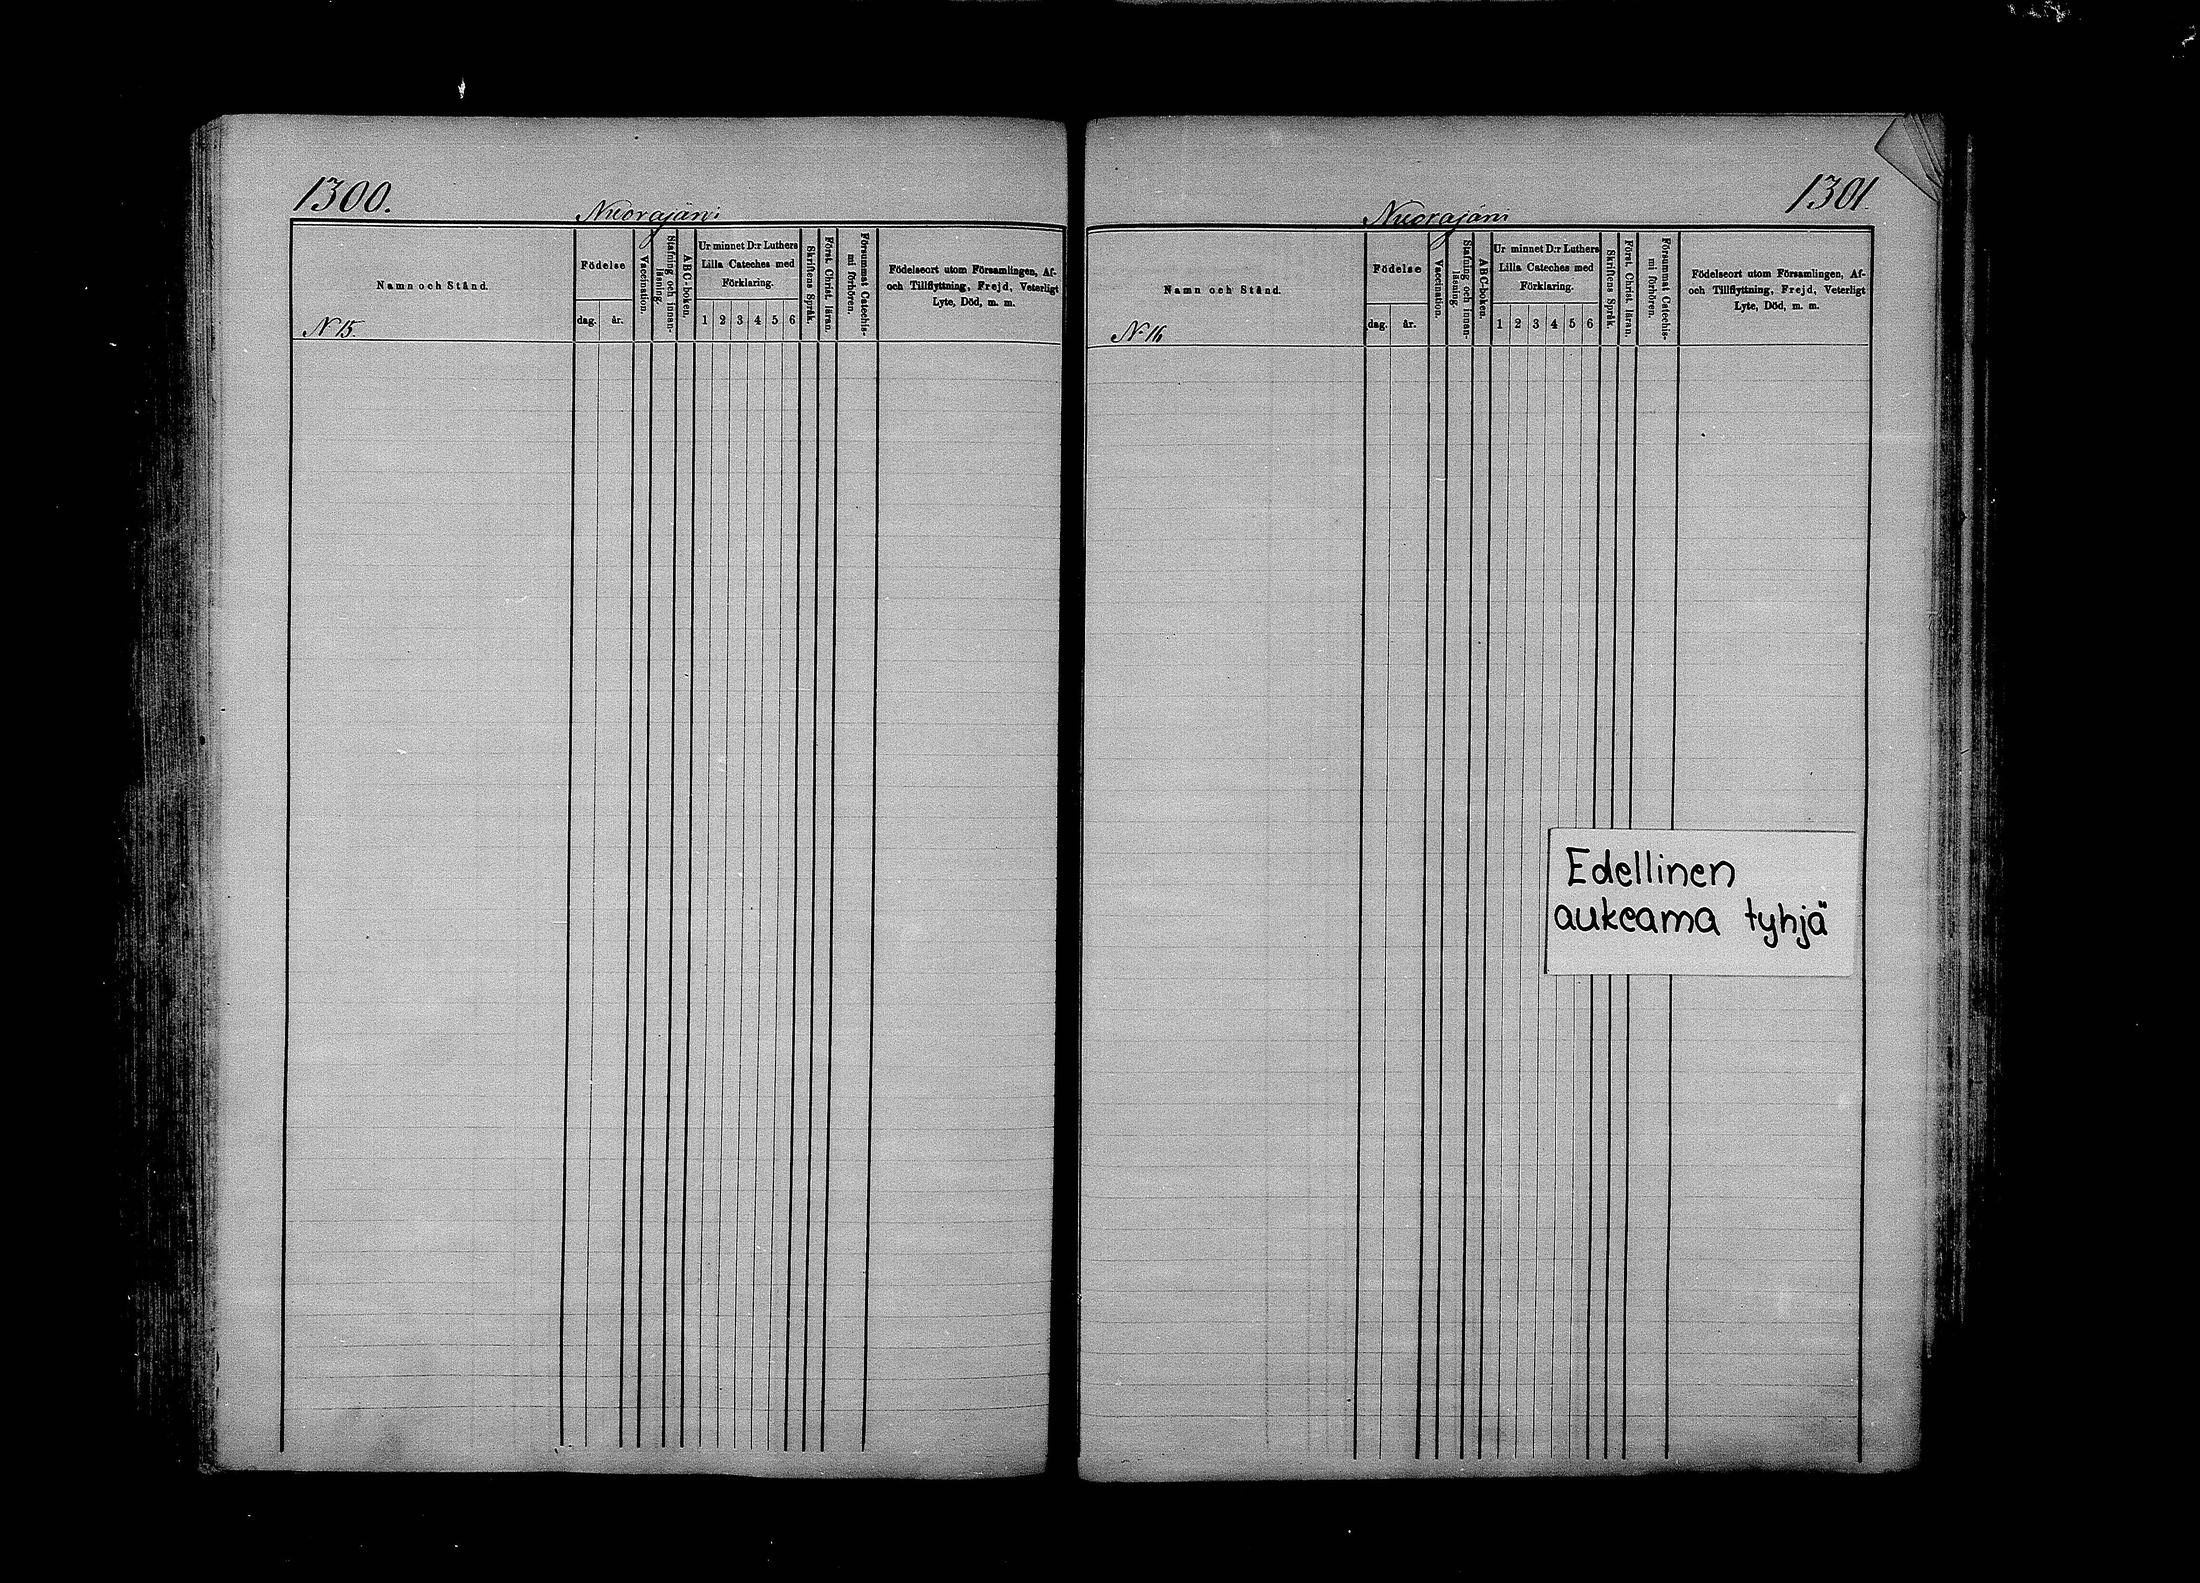 1300.
Nuorajärvi
Namn och Stånd.
Födelse
dag.
år.
Vaccination.
Stafning och innan-
läsning.
ABC-boken.
Ur minnet D:r Luthers
Lilla Cateches med
Förklaring.
1 2 3 4 5 6
Skriftens Språk.
Först. Christ. läran.
Försummat Catechis-
mi förhören.
Födelseort utom Församlingen, Af-
och Tillflyttning, Frejd, Veterligt
Lyte, Död, m. m.
N 15.
1301.
Nuorajärvi
Namn och Stånd.
Födelse
dag.
år.
Vaccination.
Stafning och innan-
läsning.
ABC-boken.
Ur minnet D:r Luthers
Lilla Cateches med
Förklaring.
1 2 3 4 5 6
Skriftens Språk.
Först. Christ. läran.
Försummat Catechis-
mi förhören.
Födelseort utom Församlingen, Af-
och Tillflyttning, Frejd, Veterligt
Lyte, Död, m. m.
N 16
Edellinen
aukeama tyhjä